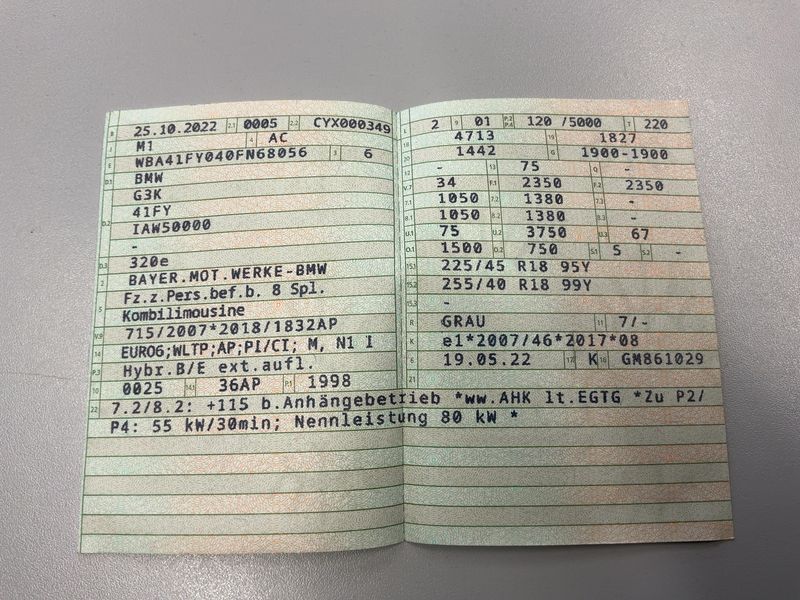 B 25.10.2022 2.1 0005 2.2 CYX000349
J M1 4 AC
E WBA41FY040FN68056 3 6
D.1 BMW
G3K
D.2 41FY
IAW50000
-
D.3 320e
2 BAYER.MOT.WERKE-BMW
5 Fz.z.Pers.bef.b. 8 Spl.
Kombilimousine
V.9 715/2007*2018/1832AP
14 EURO6;WLTP;AP;PI/CI; M, N1 I
P.3 Hybr.B/E ext.aufl.
10 0025 14.1 36AP P.1 1998
L 2 9 01 P.2 P.4 120 /5000 T 220
18 4713 19 1827
20 1442 G 1900-1900
12 - 13 75 Q -
V.7 34 F.1 2350 F.2 2350
7.1 1050 7.2 1380 7.3 -
8.1 1050 8.2 1380 8.3 -
U.1 75 U.2 3750 U.3 67
O.1 1500 O.2 750 S.1 5 S.2 -
15.1 225/45 R18 95Y
15.2 255/40 R18 99Y
15.3 -
R GRAU 11 7/-
K e1*2007/46*2017*08
6 19.05.22 17 K 16 GM861029
21
22 7.2/8.2: +115 b.Anhängebetrieb *ww.AHK lt.EGTG *Zu P2/
P4: 55 kW/30min; Nennleistung 80 kW *